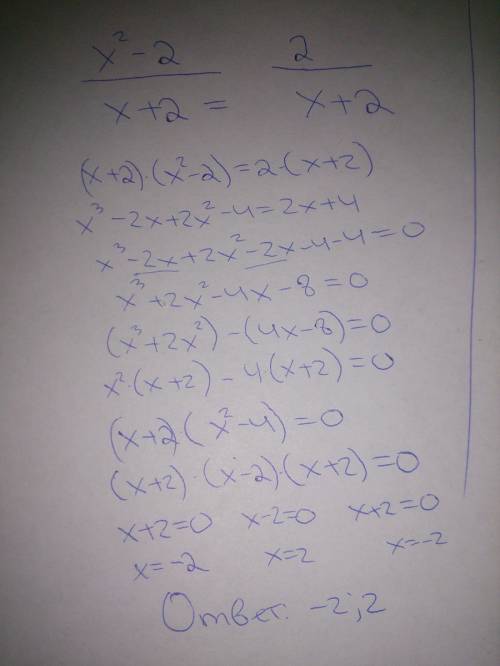 x² - 2 / x + 2 = 2 / x + 2
(x+2)·(x²-2)=2·(x+2)
x³-2x+2x²-4=2x+4
x³-2x+2x²-2x-4-4=0
x³+2x²-4x-8=0
(x³+2x²)-(4x-8)=0
x²·(x+2)-4(x+2)=0
(x+2)(x²-4)=0
(x+2)·(x-2)·(x+2)=0
x+2=0 x-2=0 x+2=0
x=-2 x=2 x=-2
Ответ. -2;2